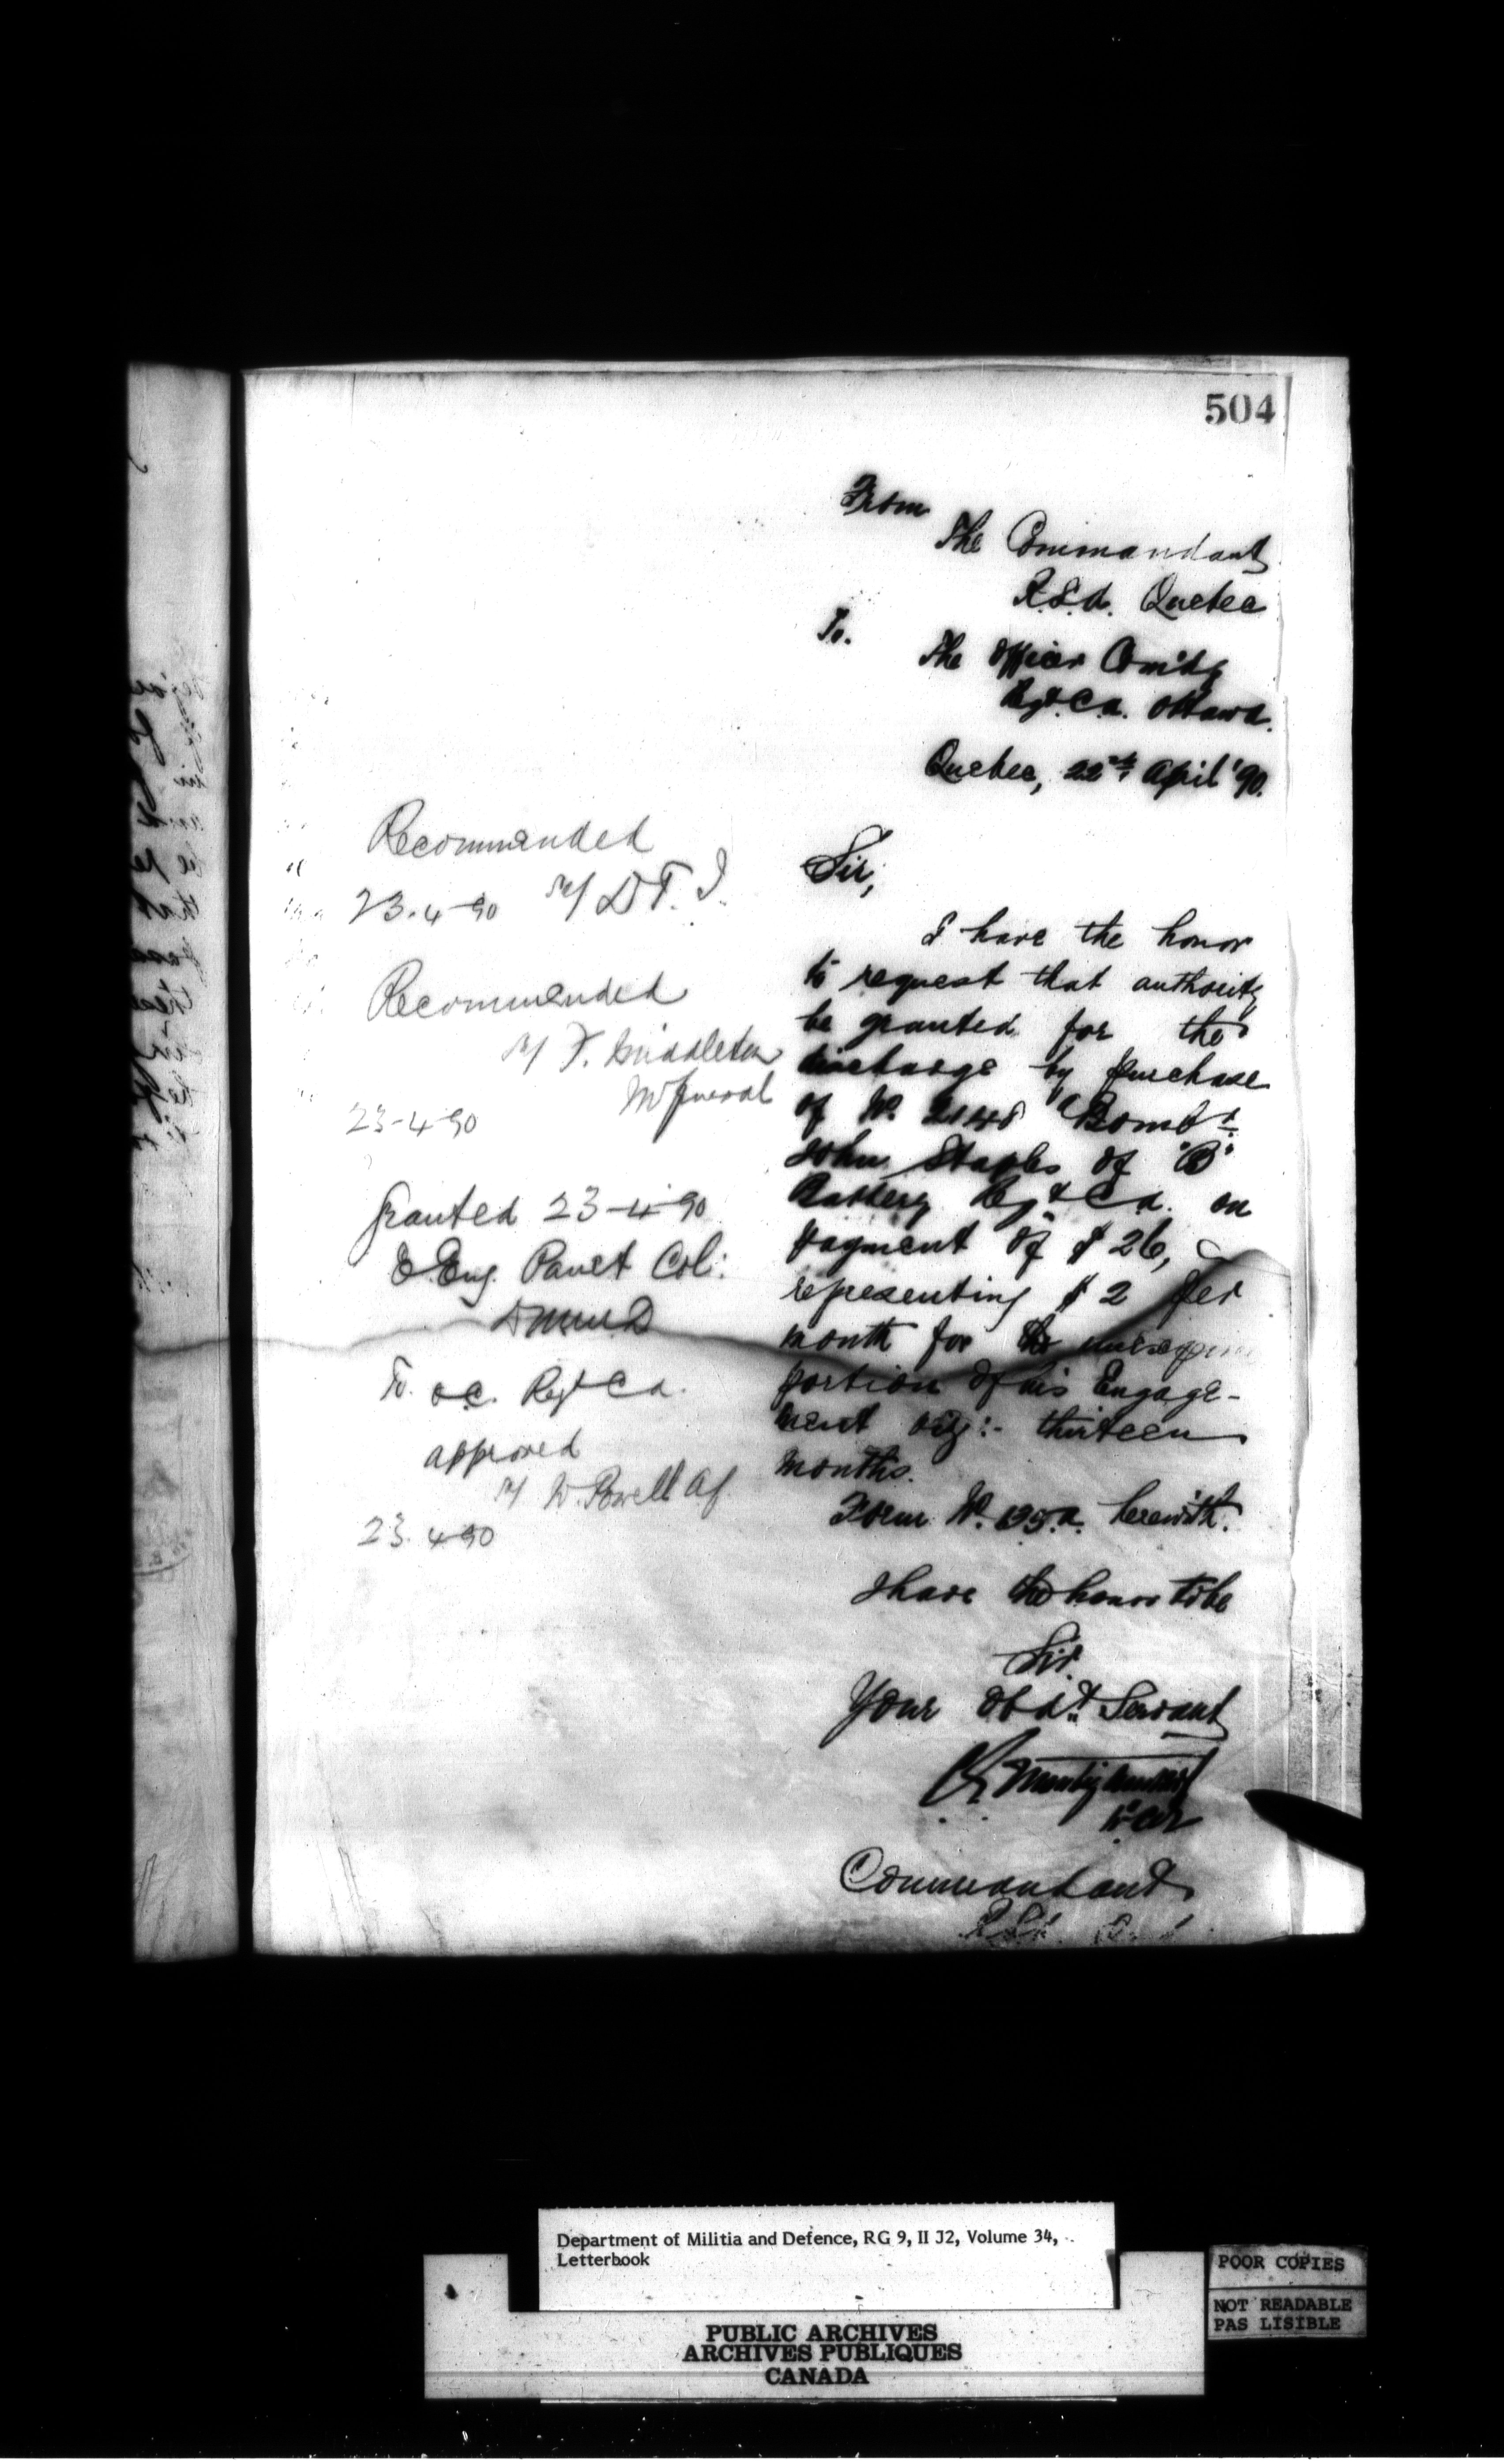 504
From
The Commandant
R.S.A. Quebec
To.
The Officer Com'dg
Regt. C.A. Ottawa.
Quebec, 22nd April '90.
Sir,
I have the honor
to request that authority
be granted for the
discharge by purchase
of No. 2148 Bombr.
John Staples of "B"
Battery Regt C.A. on
payment of $26,
representing $2 per
month for the unexpired
portion of his Engage-
ment viz:- thirteen
months.
Form No. 135.a. herewith.
I have the honor to be
Sir
Your Obdt. Servant
Commandant
R.S.A.
Recommended
23-4-90 D.T.I.
Recommended
F. Middleton
M General
23-4-90
Granted 23-4-90
Panet Col:
To. O.C. Regt C.A.
approved
W. Powell
23.4.90
Department of Militia and Defence, RG 9, II J2, Volume 34,
Letterbook
PUBLIC ARCHIVES
ARCHIVES PUBLIQUES
CANADA
POOR COPIES
NOT READABLE
PAS LISIBLE